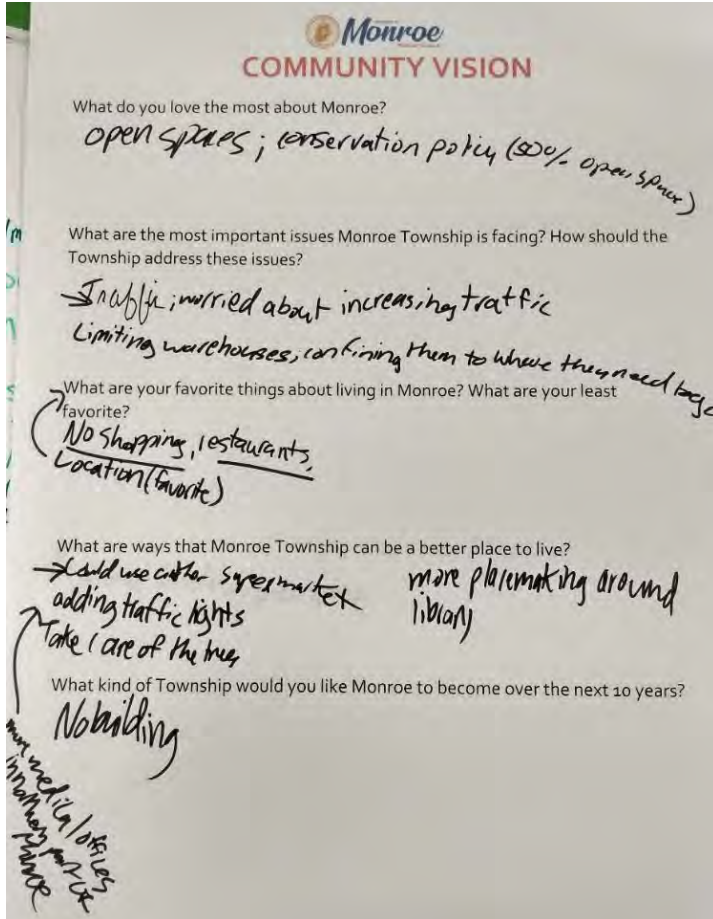 Monroe
COMMUNITY VISION
What do you love the most about Monroe?
open spaces; conservation policy (50% open space)
What are the most important issues Monroe Township is facing? How should the
Township address these issues?
→Traffic; worried about increasing traffic
Limiting warehouses; confining them to where they need to go
What are your favorite things about living in Monroe? What are your least
favorite?
No shopping, restaurants.
Location (favorite)
What are ways that Monroe Township can be a better place to live?
→Could use another supermarket
adding traffic lights
Take care of the trees
more placemaking around
library
What kind of Township would you like Monroe to become over the next 10 years?
No building
more medical offices
in northern part of
Monroe